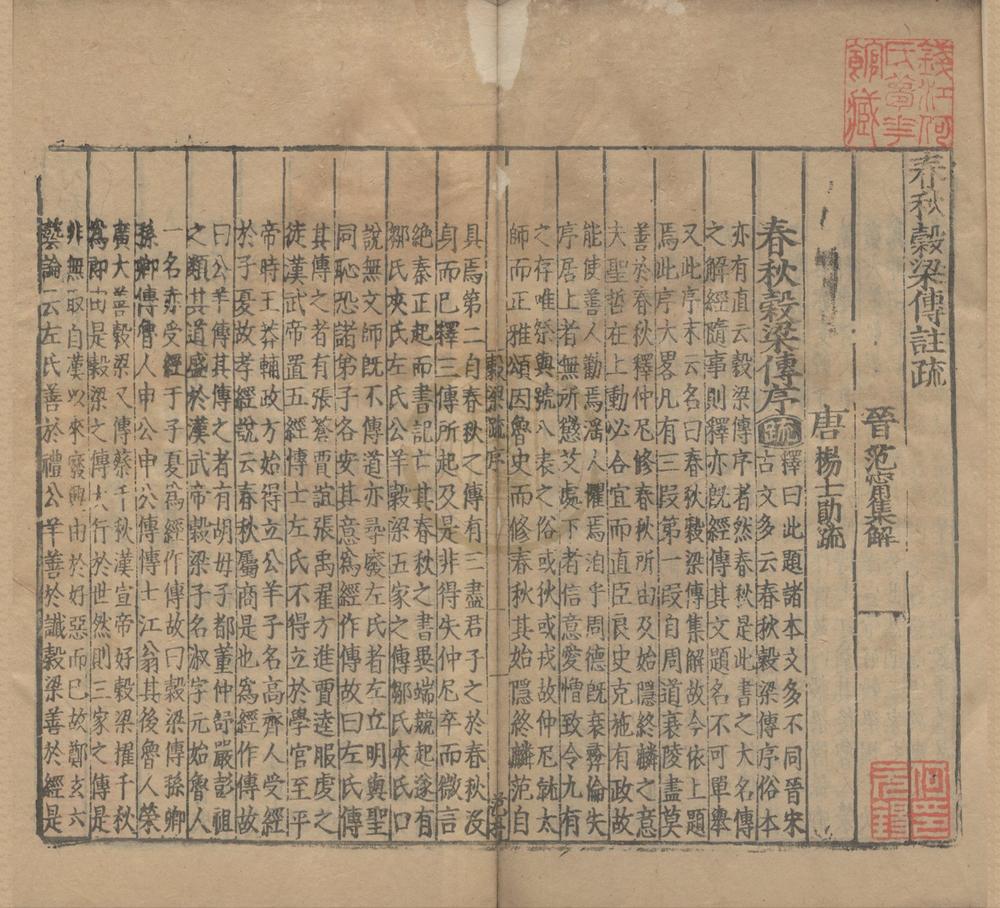 春秋穀梁傳註疏
晉范甯集解
唐楊士勛疏
春秋穀梁傳序疏釋曰此題諸本文多不同晉宋
古文多云春秋穀梁傳序俗本
亦有直云穀梁傳序者然春秋是此書之大名傳
之解經隨事則釋亦既經傳共文題名不可單舉
又此序末云名曰春秋穀梁傳集解故今依上題
焉此序大畧凡有三段第一段自周道衰陵盡莫
善於春秋釋仲尼修春秋所由及始隱終麟之意
夫聖哲在上動必合宜而直臣良史克施有政故
能使善人勸焉淫人懼焉洎乎周德既衰彛倫失
序居上者無所懲艾處下者信意愛憎致令九有
之存唯祭與號八表之俗或狄或戎故仲尼就太
師而正雅頌因魯史而修春秋其始隱終麟范自
穀梁疏序
具焉第二自春秋之傳有三盡君子之於春秋沒
身而已釋三傳所起及是非得失仲尼卒而微言
絶秦正起而書記亡其春秋之書異端競起遂有
鄒氏夾氏左氏公羊穀梁五家之傳鄒氏夾氏口
說無文師既不傳道亦尋廢左氏者左丘明與聖
同恥恐諸弟子各安其意爲經作傳故曰左氏傳
其傳之者有張蒼賈誼張禹翟方進賈逵服虔之
徒漢武帝置五經博士左氏不得立於學官至平
帝時王莽輔政方始得立公羊子名高齊人受經
於子夏故孝經說云春秋屬商是也爲經作傳故
曰公羊傳其傳之者有胡毋子都董仲舒嚴彭祖
之類其道盛於漢武帝穀梁子名淑字元始魯人
一名赤受經于子夏爲經作傳故曰穀梁傳孫卿
孫卿傳魯人申公申公傳博士江翁其後魯人榮
廣大善穀梁又傳蔡千秋漢宣帝好穀梁擢千秋
爲郎由是穀梁之傳大行於世然則三家之傳是
非無取自漢以來廢興由於好惡而已故鄭玄六
藝論云左氏善於禮公羊善於讖穀梁善於經是